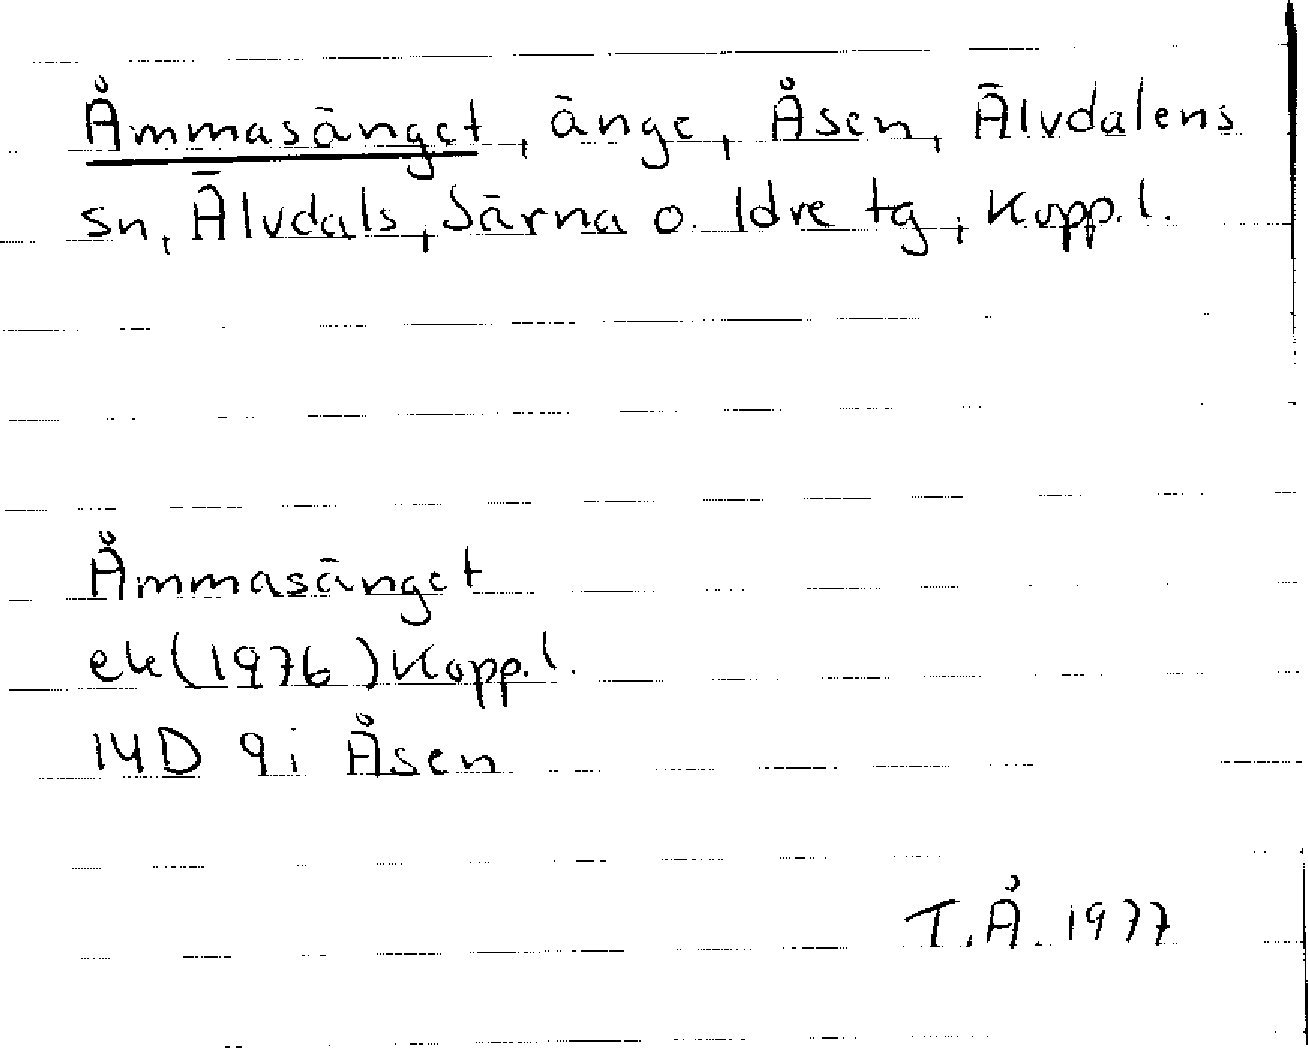 Åmmasänget, änge, Åsen, Älvdalens
sn, Älvdals, Särna o. Idre tg, Kopp.l.
Åmmasänget
ek (1976) Kopp.l.
14D 9i Åsen
T.Å. 1977